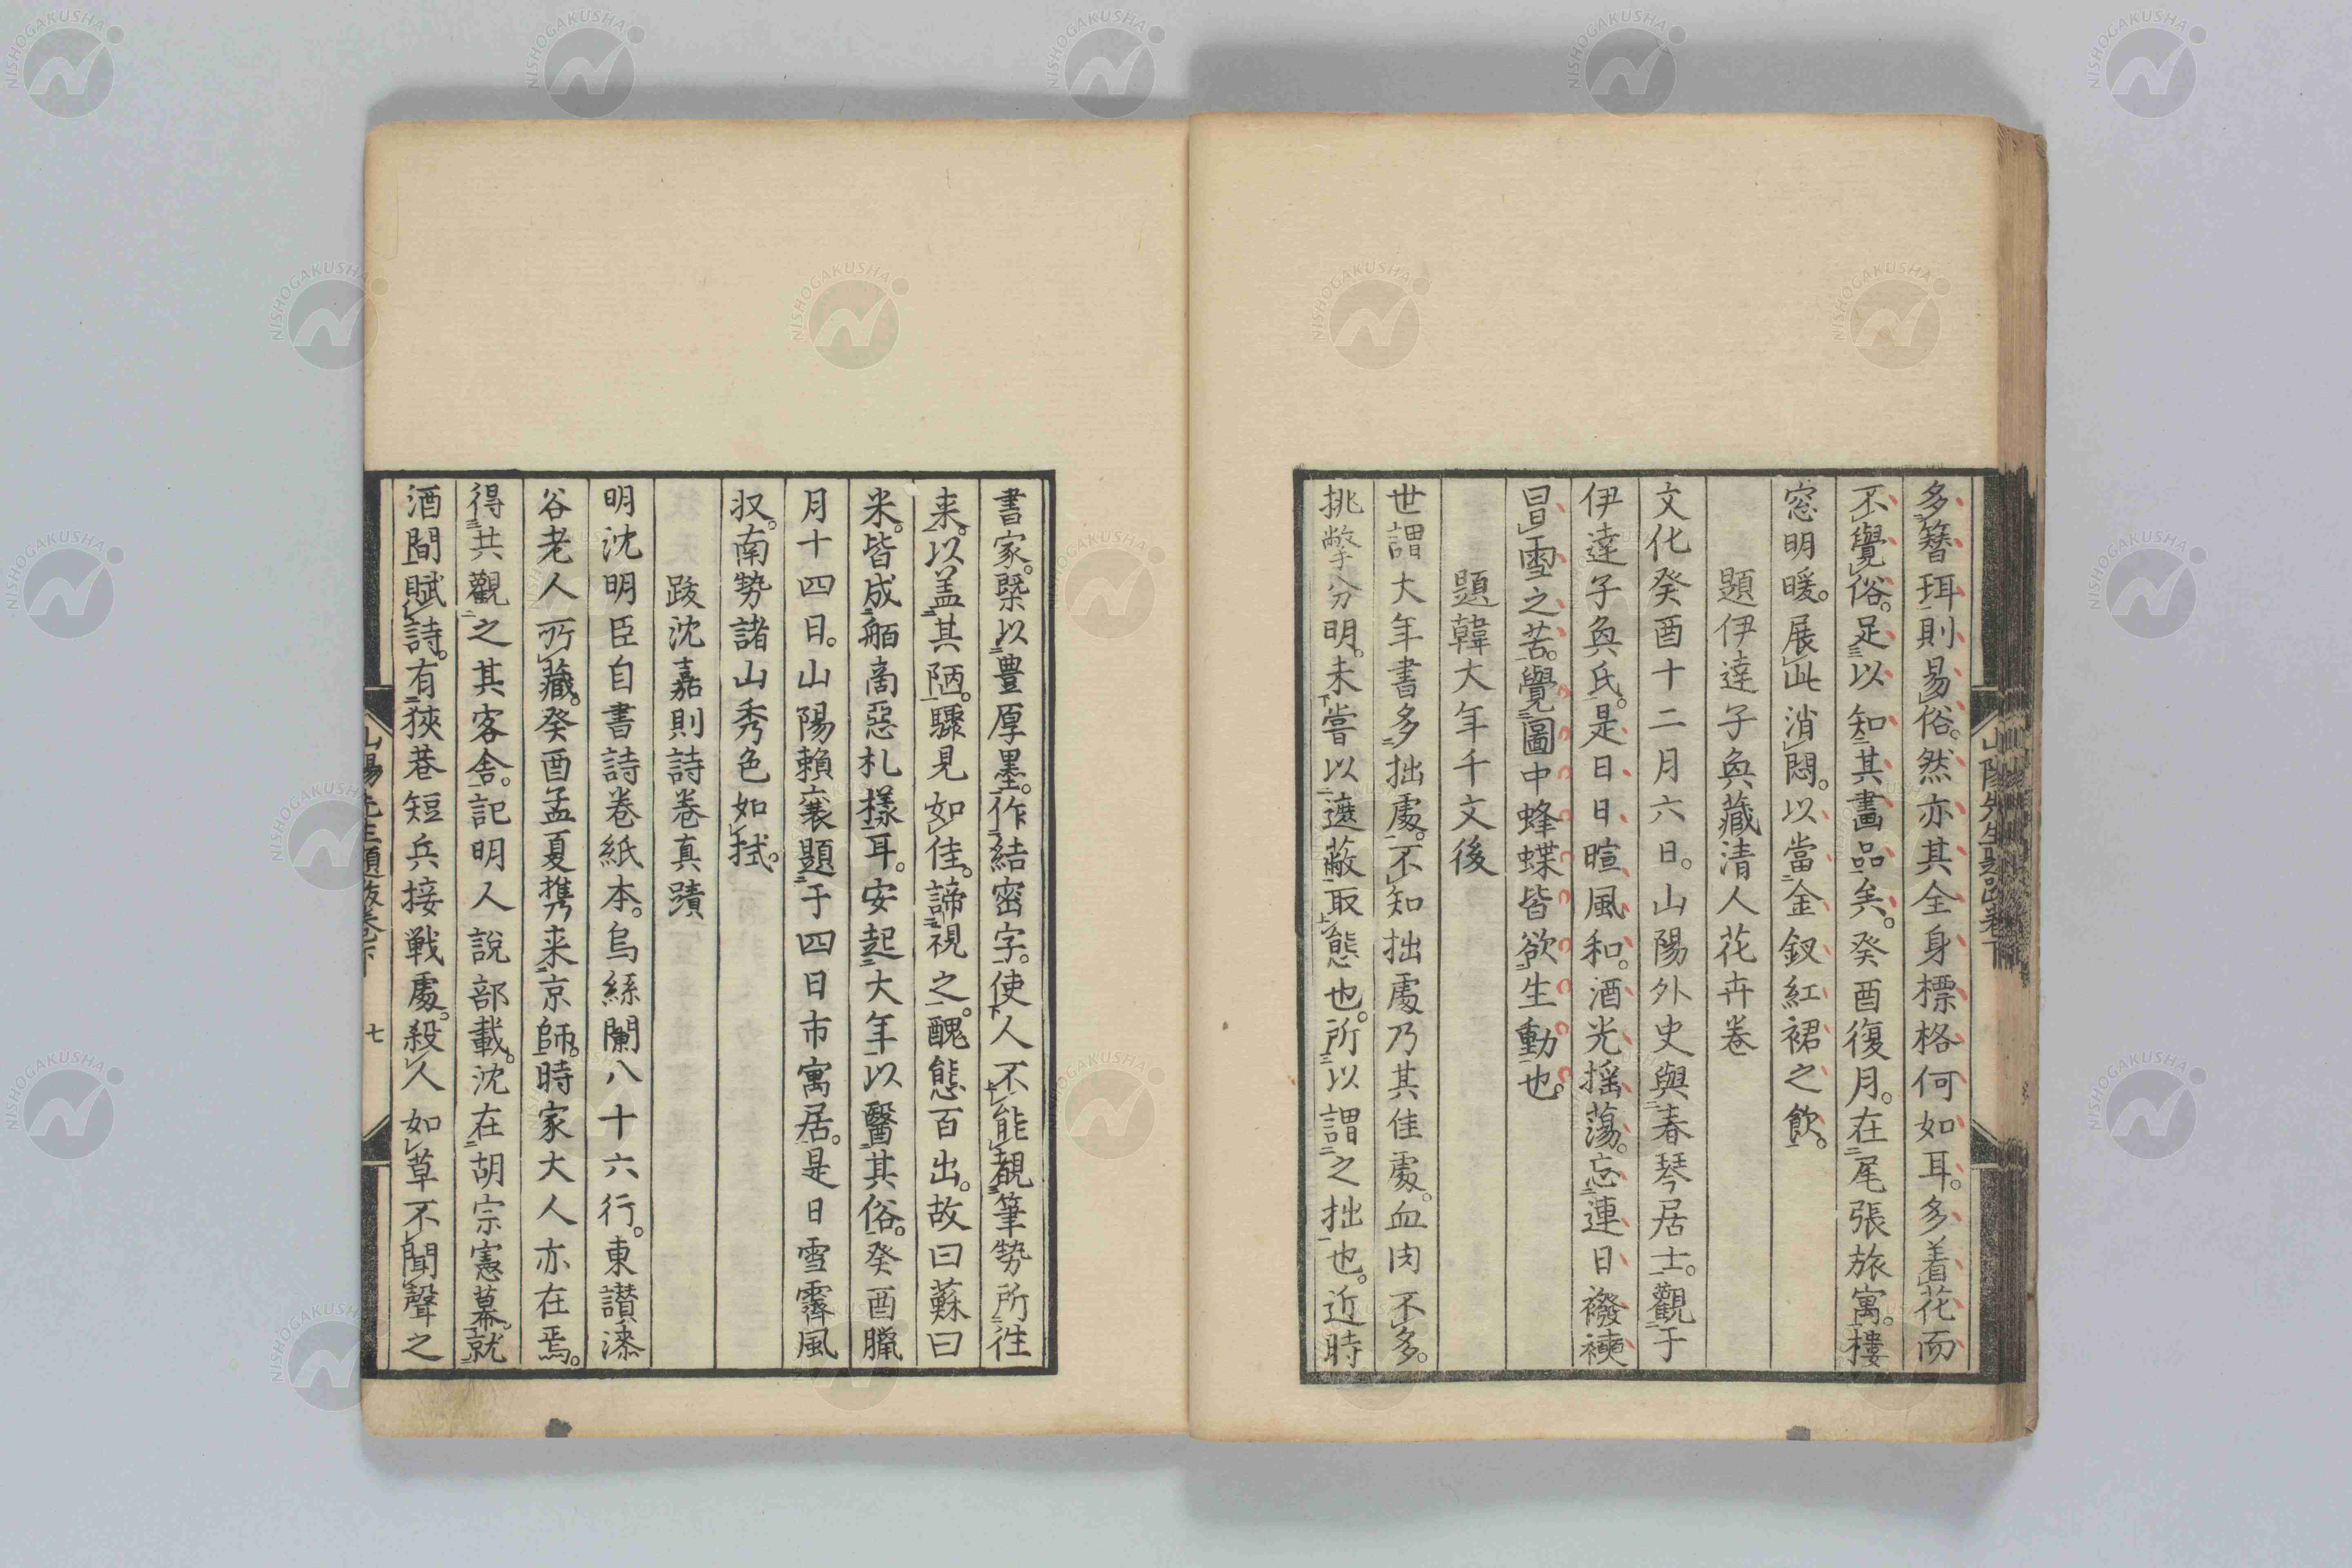 多簪珥則易俗。然亦其全身標格何如耳。多着花而
不覺俗。足以知其畫品矣。癸酉復月。在尾張旅寓。樓
窓明暖。展此消悶。以當金釵紅裙之飲。
題伊達子奐藏清人花卉卷
文化癸酉十二月六日。山陽外史與春琴居士。觀于
伊達子奐氏。是日日暄風和。酒光搖蕩。忘連日襏襫
冒雪之苦。覺圖中蜂蝶皆欲生動也。
題韓大年千文後
世謂大年書多拙處。不知拙處乃其佳處。血肉不多。
挑撆分明。未嘗以遮蔽取態也。所以謂之拙也。近時
山陽先生題跋卷下
書家。槩以豊厚墨。作結密字。使人不能覩筆勢所往
来。以盖其陋。驟見如佳。諦視之。醜態百出。故曰蘇曰
米。皆成舶商惡札樣耳。安起大年以醫其俗。癸酉臘
月十四日。山陽賴襄題于四日市寓居。是日雪霽風
収。南勢諸山秀色如拭。
跋沈嘉則詩卷真蹟
明沈明臣自書詩卷紙本。烏絲闌八十六行。東讃漆
谷老人所藏。癸酉孟夏携来京師。時家大人亦在焉。
得共觀之其客舎。記明人說部載。沈在胡宗憲幕。就
酒間賦詩。有狹巷短兵接戦處。殺人如草不聞聲之
山陽先生題跋卷下 七
NISHOGAKUSHA